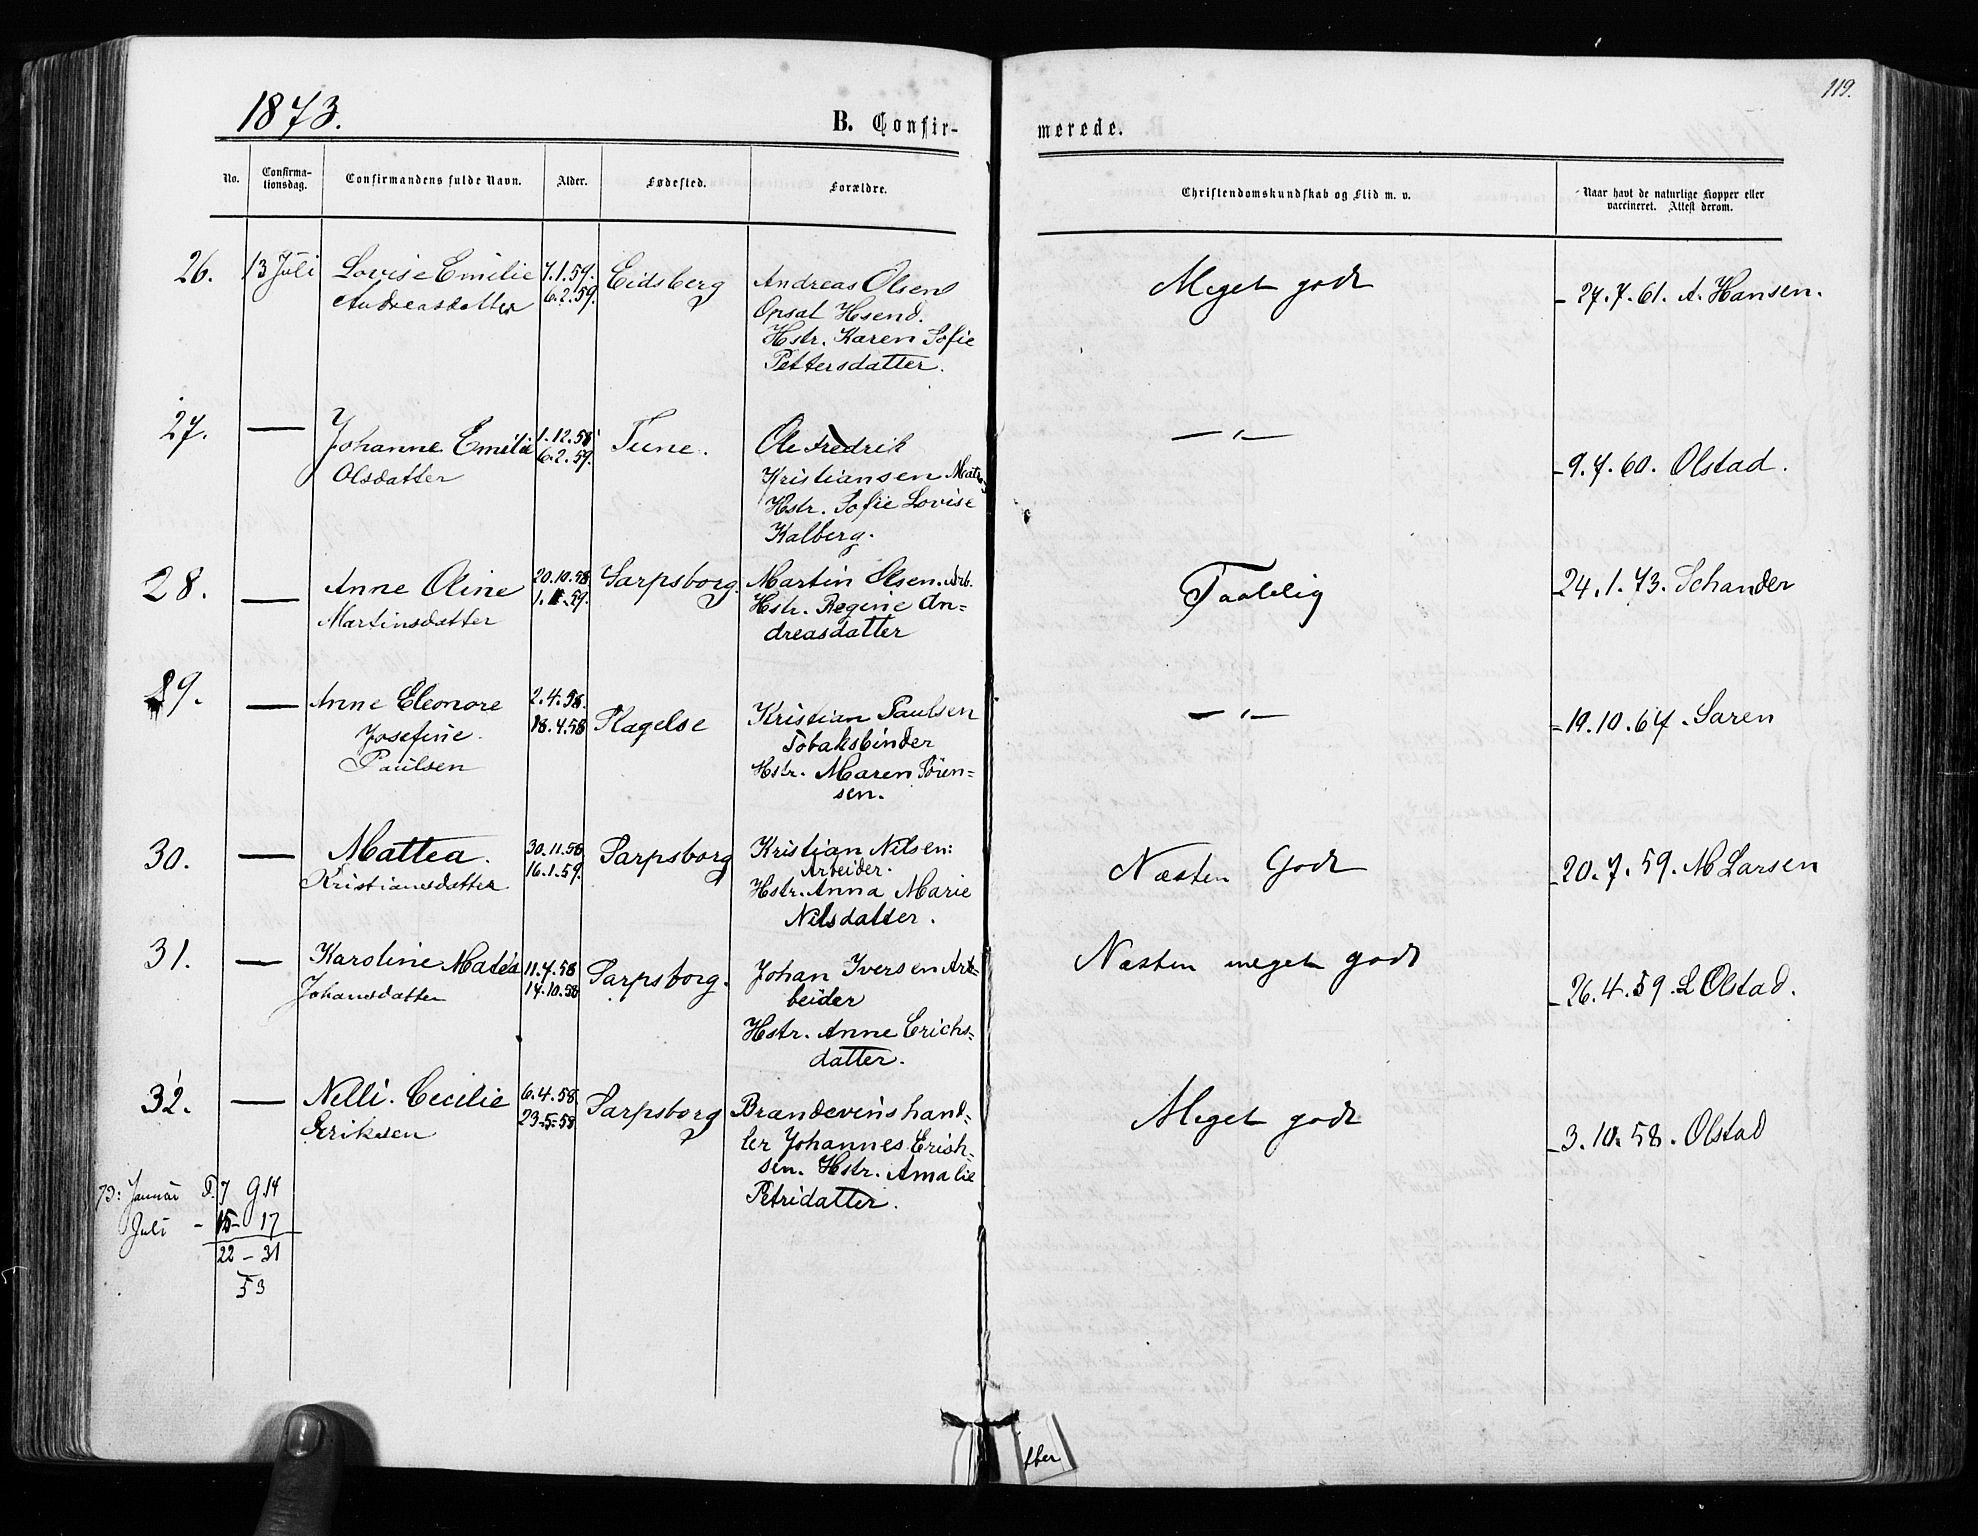 119.
1873.
B. Confir-
merede.
No.
Confirma-
tionsdag.
Confirmandens fulde Navn.
Alder.
Fødested.
Forældre.
Christendomskundskab og Flid m. v.
Naar havt de naturlige Kopper eller
vaccineret. Attest derom.
26. 13 Juli Lovise Emilie 7.1.59. Eidsberg Andreas Olsen Meget godt
Andreasdatter 6.2.59. Opsal Hsend. 27.7.61. A. Hansen.
Hstr. Karen Sofie
Pettersdatter.
27. — Johanne Emilie 1.12.58 Tune. Ole Fredrik — „ —
Olsdatter 6.2.59. Kristiansen Matr. 9.7.60. Olstad.
Hstr. Sofie Lovise
Kalberg.
28. — Anne Oline 20.10.58. Sarpsborg. Martin Olsen. Arb. Taalelig 24.1.73. Schander
Martinsdatter 1.1.59. Hstr. Regine An=
dreasdatter
29. — Anne Eleonore 2.4.58. Slagelse Kristian Paulsen — „ — 19.10.67. Saren
Josefine. 18.4.58 Tobaksbinder
Paulsen Hstr. Maren Sören=
sen.
30. — Mattea. 30.11.58 Sarpsborg Kristian Nilsen: Næsten Godt 20.7.59. M Larsen
Kristiansdatter 16.1.59. Arbeider.
Hstr. Anna Marie
Nilsdatter.
31. — Karoline Matea 11.7.58 Sarpsborg. Johan Iversen Ar= Næsten meget godt
Johansdatter 17.10.58 beider 26.4.59. L Olstad.
Hstr. Anne Erichs=
datter.
32. — Nelli. Cecilie 6.4.58. Sarpsborg Brændevinshand= Meget godt
Eriksen 23-5-58 ler Johannes Erish= 3.10.58. Olstad
sen. Hstr. Amalie
Petridatter.
73: Januar D. 7 g 14
Juli - 15 - 17
22 - 31
53
fter